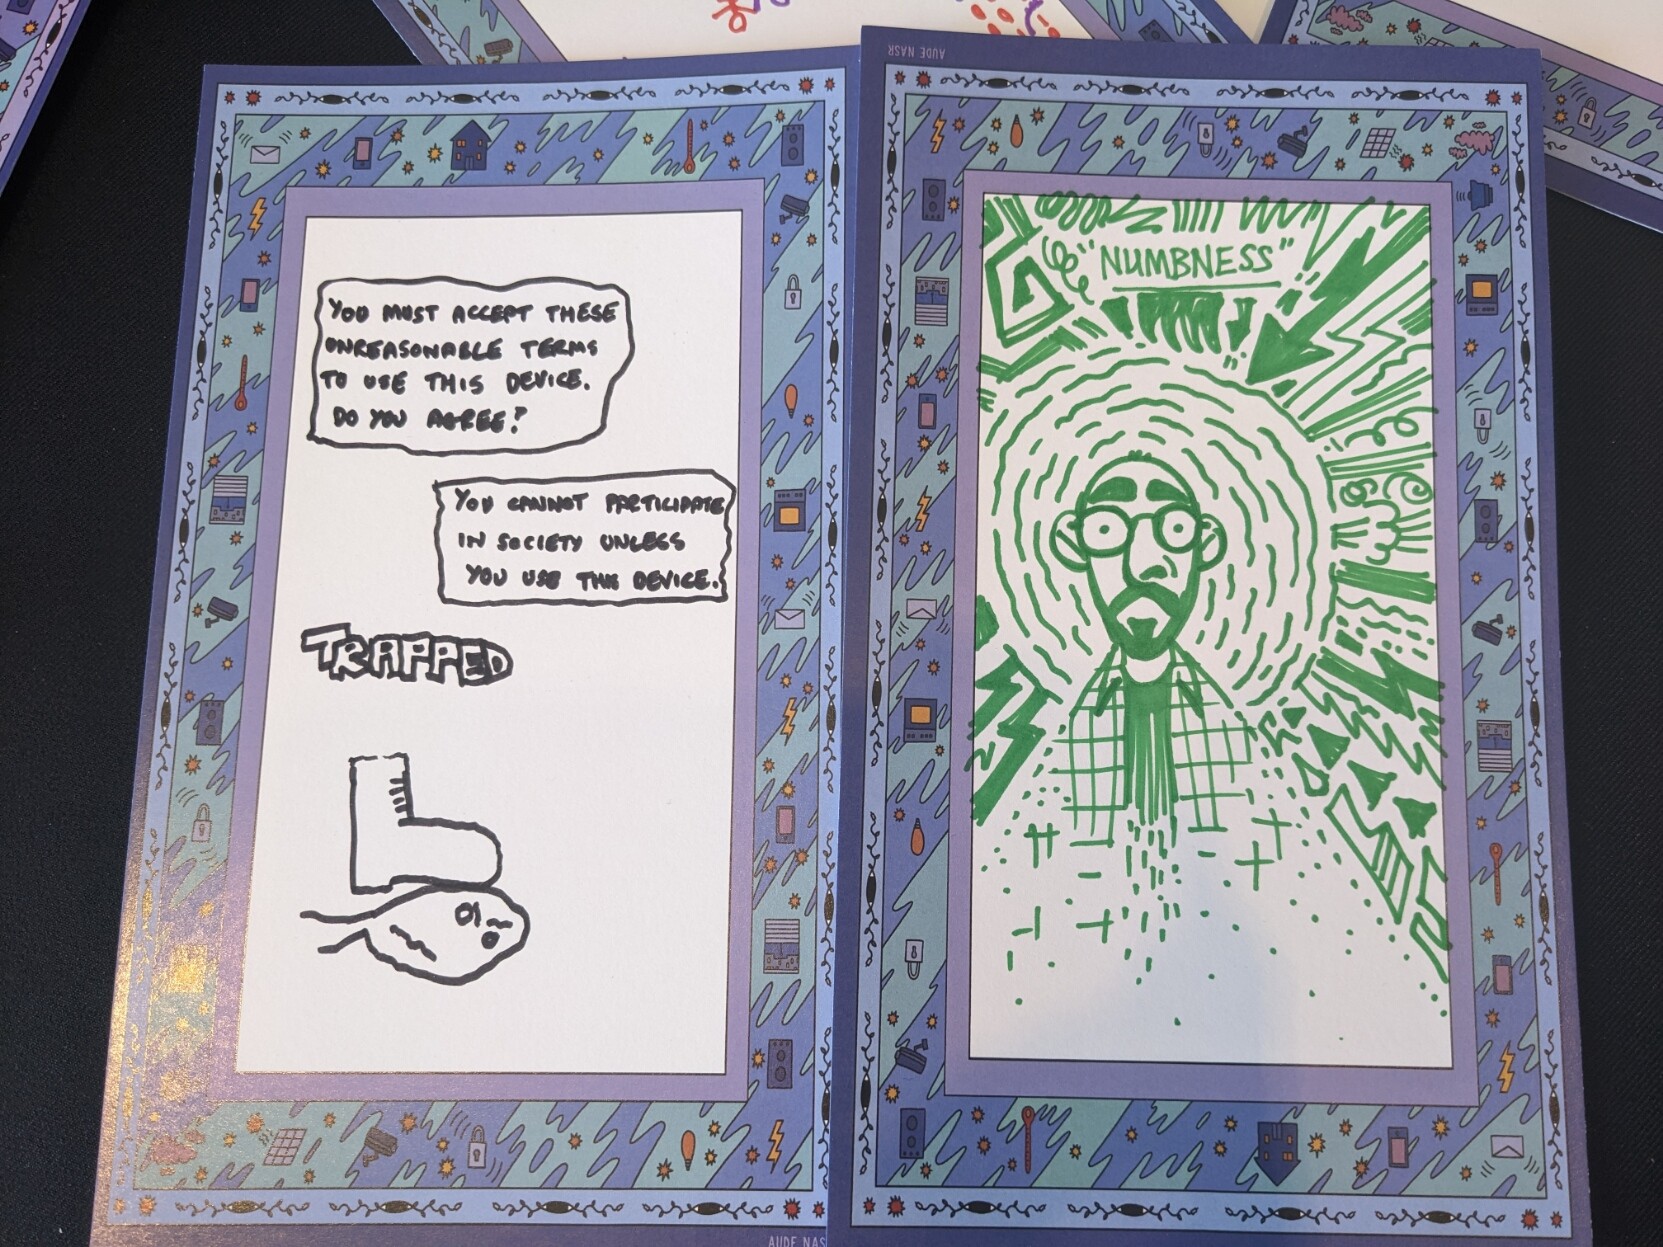 YOU MUST ACCEPT THESE
UNREASONABLE TERMS
TO USE THIS DEVICE.
DO YOU AGREE?
YOU CANNOT PARTICIPATE
IN SOCIETY UNLESS
YOU USE THIS DEVICE.
TRAPPED
AUDE NAS
AUDE NASR
"NUMBNESS"